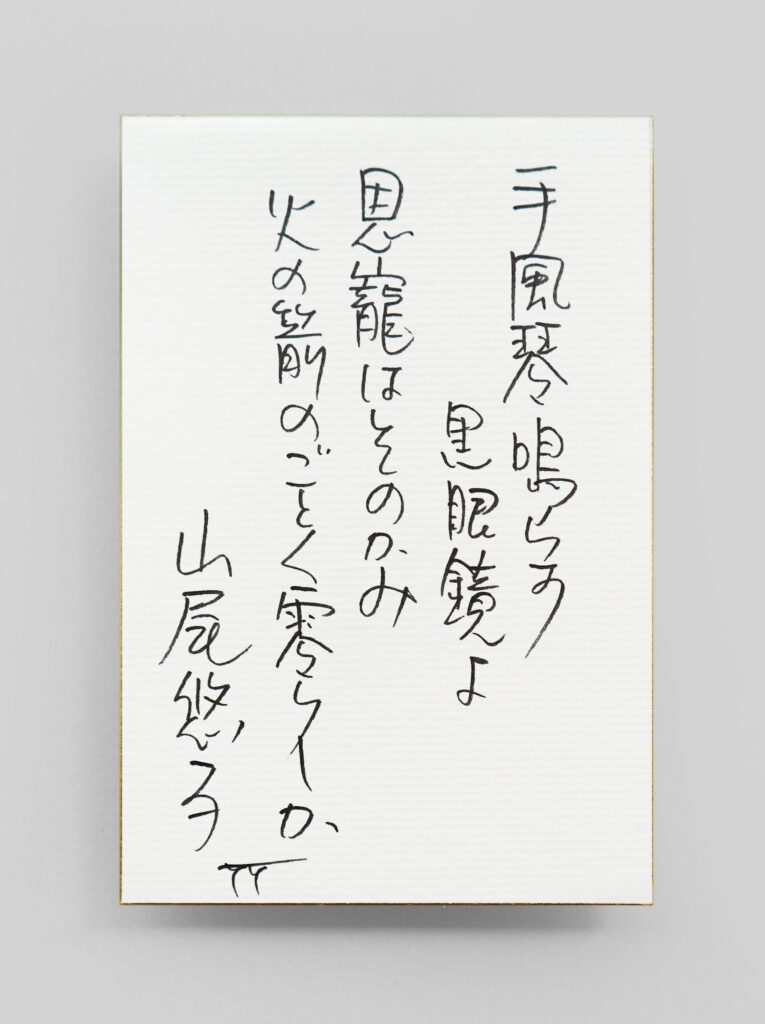 手風琴鳴らす
黒眼鏡よ
恩寵はそのかみ
火の箭のごとく零らしか
山尾悠子